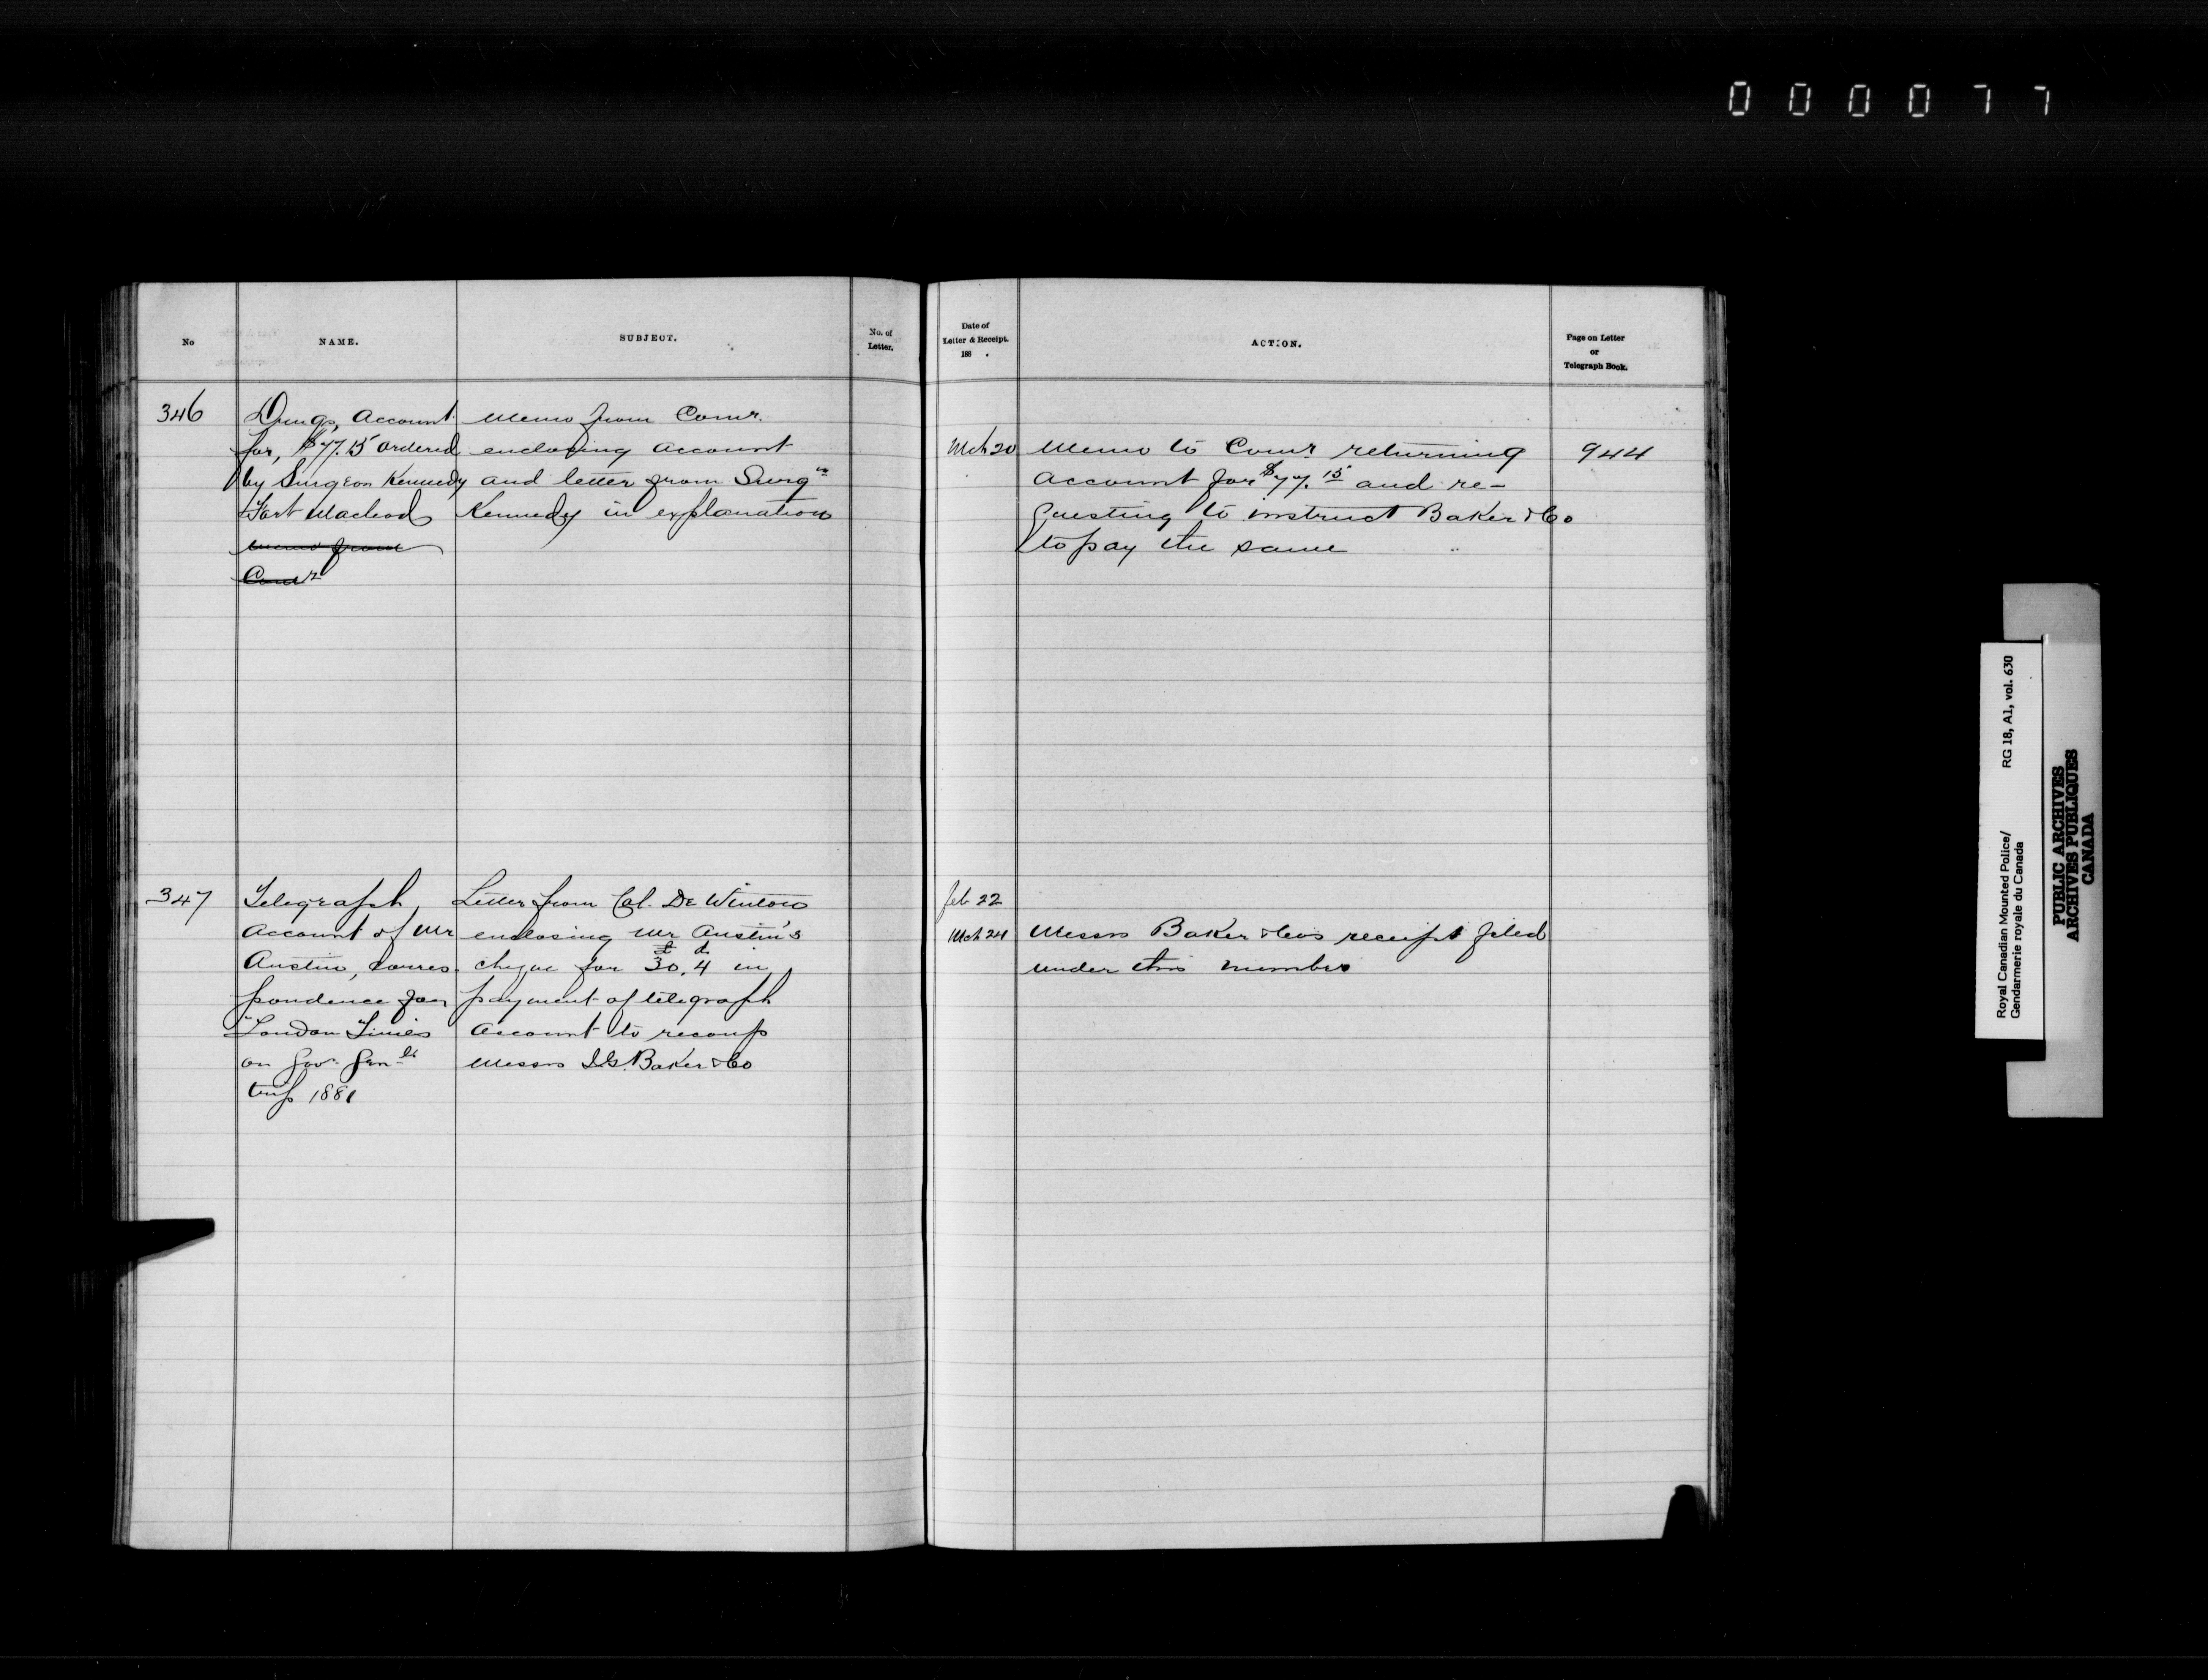 000077
No
NAME.
SUBJECT.
No. of
Letter.
Date of
Letter & Receipt.
188 .
ACTION.
Page on Letter
or
Telegraph Book.
346
Drugs, Account
for, $77.15 ordered
by Surgeon Kennedy
Fort Macleod
Memo from
Comr
Memo from Comr.
enclosing account
and letter from Surgn
Kennedy in explanation
Mch 20
Memo to Comr returning
account for $77.15 and re-
questing to instruct Baker & Co
to pay the same
944
347
Telegraph
Account of Mr
Austin, corres-
pondence for
London Times
on Gov. Genls
trip 1881
Letter from Col. De Winton
enclosing Mr Austin's
cheque for £30.4d in
payment of telegraph
Account to recoup
Messrs I.G. Baker & Co
Feb 22
Mch 24
Messrs Baker & Co's receipt filed
under this number
Royal Canadian Mounted Police/
Gendarmerie royale du Canada
RG 18, A1, vol. 630
PUBLIC ARCHIVES
ARCHIVES PUBLIQUES
CANADA